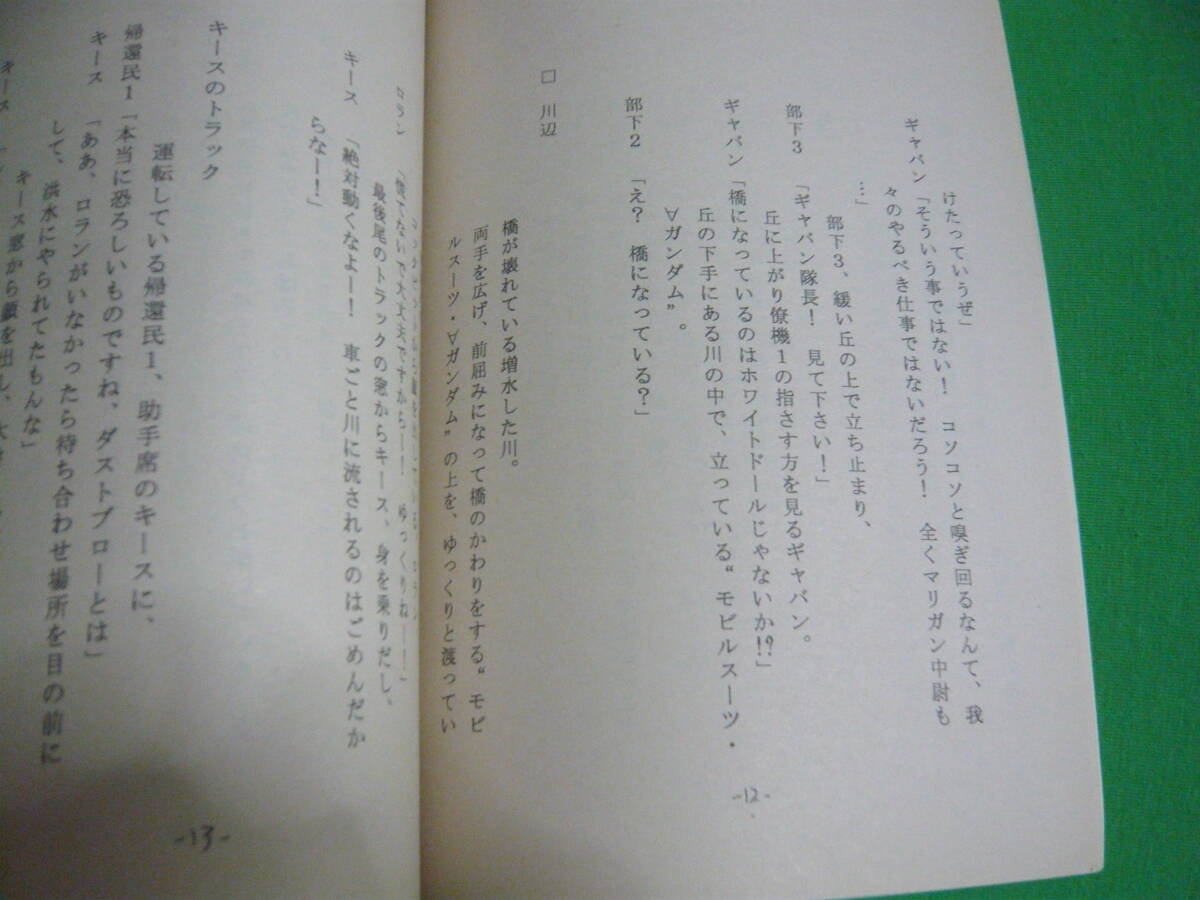 けたっていうぜ」
ギャバン「そういう事ではない！　コソコソと嗅ぎ回るなんて、我
々のやるべき仕事ではないだろう！　全くマリガン中尉も
…」
部下3、緩い丘の上で立ち止まり、
部下3　「ギャバン隊長！　見て下さい！」
丘に上がり僚機1の指さす方を見るギャバン。
ギャバン「橋になっているのはホワイトドールじゃないか!?」
丘の下手にある川の中で、立っている“モビルスーツ・
∀ガンダム”。
部下2　「え？　橋になっている？」
□　川辺
橋が壊れている増水した川。
両手を広げ、前屈みになって橋のかわりをする“モビ
ルスーツ・∀ガンダム”の上を、ゆっくりと渡ってい
-12-
ロラン　「慌てないで大丈夫ですからー！　ゆっくりねー！」
最後尾のトラックの窓からキース、身を乗りだし、
キース　「絶対動くなよー！　車ごと川に流されるのはごめんだか
らなー！」
キースのトラック
運転している帰還民1、助手席のキースに、
帰還民1「本当に恐ろしいものですね、ダストブローとは」
キース　「ああ、ロランがいなかったら待ち合わせ場所を目の前に
して、洪水にやられてたもんな」
キース窓から顔を出し、
キース
-13-